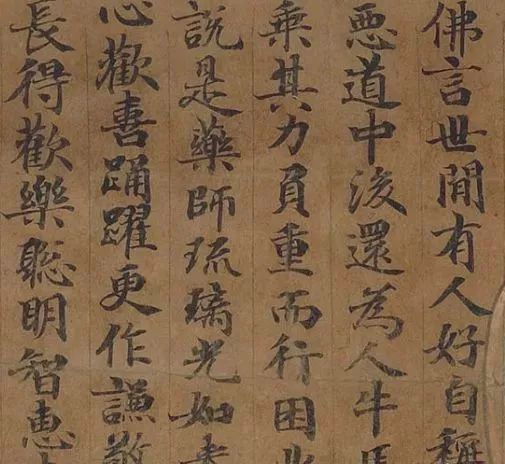 佛言世間有人好自稱
惡道中後還為人牛馬
乘其力負重而行困
說是藥師琉璃光如来
心歡喜踊躍更作謙敬
長得歡樂聦明智惠